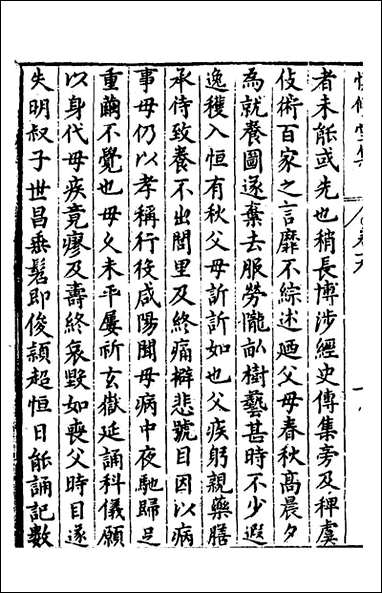 者未能或先也稍長博涉經史傳集旁及稗虞
伎術百家之言靡不綜述廼父母春秋高晨夕
為就養圖遂棄去服勞隴畝樹藝甚時不少遐
逸穫入恒有秋父母訢訢如也父疾躬親藥膳
承侍致養不出閭里及終痛擗悲號目因以病
事母仍以孝稱行役咸陽聞母病中夜馳歸足
重繭不覺也母久未平屢祈玄嶽延誦科儀願
以身代母疾竟瘳及壽終哀毀如喪父時目遂
失明叔子世昌垂髫即俊穎超恒日能誦記數